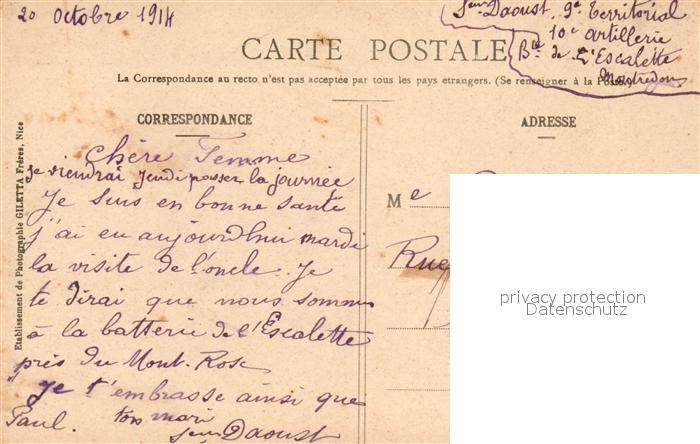 20 Octobre 1914
Daoust, 9e Territorial
10e Artillerie
Bie de L'Escalette
Montredon
CARTE POSTALE
La Correspondance au recto n'est pas acceptée par tous les pays étrangers. (Se renseigner à la Poste.)
CORRESPONDANCE
chère Femme
je viendrai jeudi passer la journée
Je suis en bonne santé
j'ai eu aujourdhui mardi
la visite de l'oncle. Je
te dirai que nous sommes
à la batterie de l'Escalette
près du Mont-Rose
je t'embrasse ainsi que
Paul. ton mari
Daoust
Etablissement de Photographie GILETTA Frères, Nice
ADRESSE
Me
Rue
privacy protection
Datenschutz